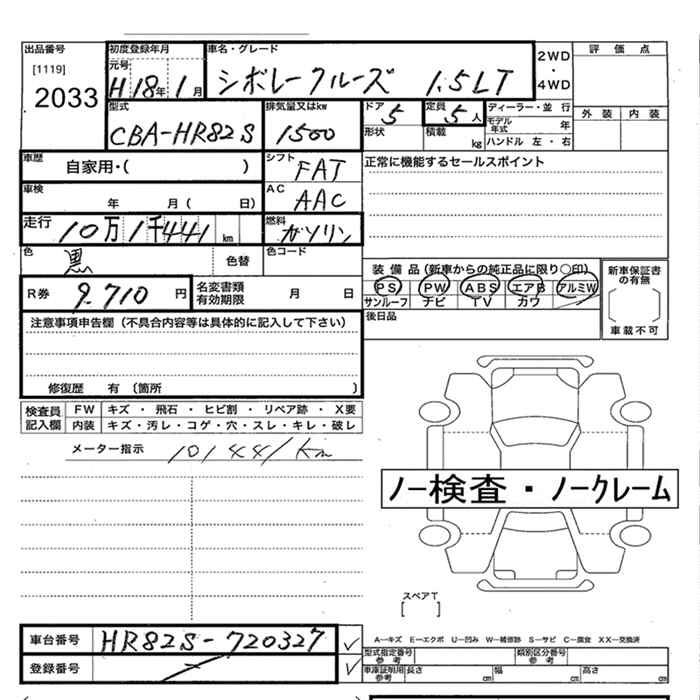 出品番号 初度登録年月 車名・グレード 2WD 評価点
[1119] 元号
2033 H18年1月 シボレークルーズ 1.5LT ・ 4WD
型式 排気量又はkw ドア 定員 ディーラー・並行 外装 内装
CBA-HR82S 1500 5 5人 モデル年式 年
形状 積載 kg ハンドル 左・右
車歴 自家用・( ) シフト FAT 正常に機能するセールスポイント
車検 年 月( 日) AC AAC
走行 10万1千441km 燃料 ガソリン
色 黒 色替 色コード
装備品(新車からの純正品に限り○印) 新車保証書の有無
R券 9,710円 名変書類有効期限 月 日 PS PW ABS エアB アルミW
サンルーフ ナビ TV カワ
注意事項申告欄(不具合内容等は具体的に記入して下さい) 後日品 車載不可
修復歴 有(箇所 )
検査員記入欄 FW キズ・飛石・ヒビ割・リペア跡・X要
内装 キズ・汚レ・コゲ・穴・スレ・キレ・破レ
メーター指示 101441km
ノー検査・ノークレーム
スペアT
[ ]
車台番号 HR82S-720327 ✓ A—キズ E—エクボ U—凹み W—補修跡 S—サビ C—腐食 XX—交換済
登録番号 — ✓ 型式指定番号 参考 類別区分番号 参考
車庫証明用参考 長さ cm 幅 cm 高さ cm